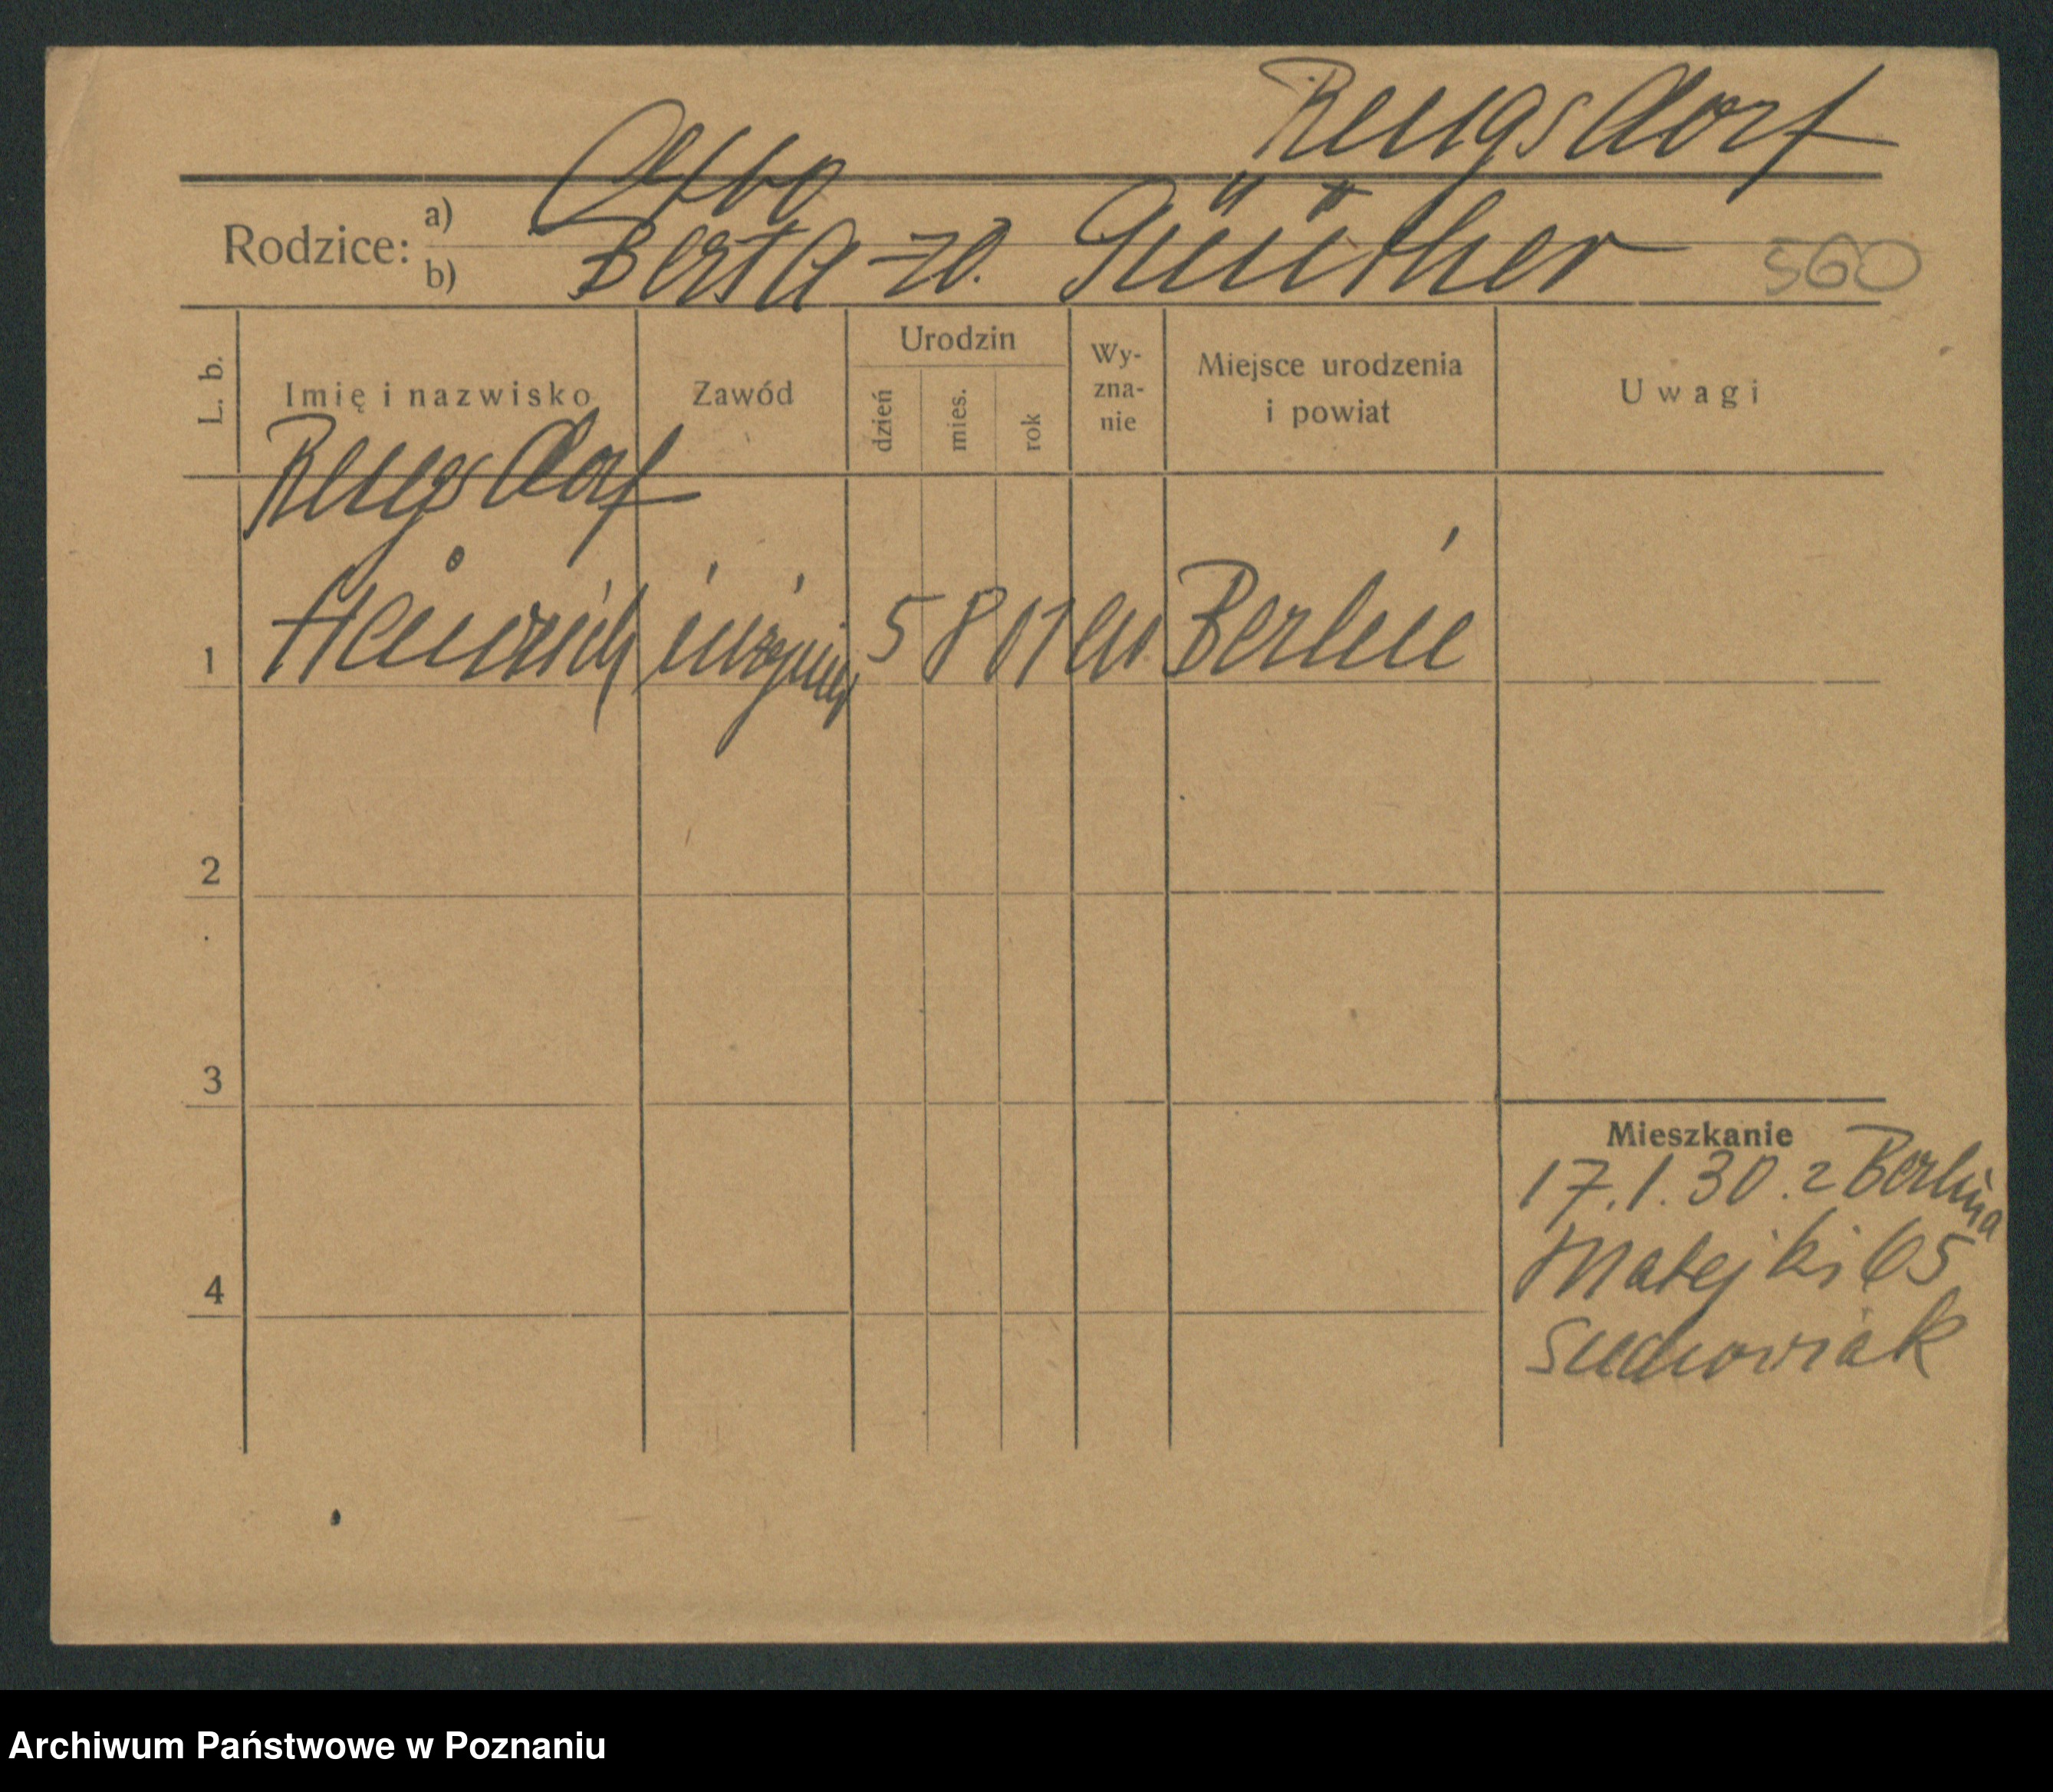 Rengsdorf
Rodzice:
a) Otto
b) Berta zd. Günther
560
L. b.
Imię i nazwisko
Zawód
Urodzin
dzień
mies.
rok
Wy-
zna-
nie
Miejsce urodzenia
i powiat
Uwagi
Rengsdorf
1 Heinrich inżynier 5 8 01 ew Berlin
2
3
4
Mieszkanie
17.1.30. z Berlina
Matejki 65
Suchowiak